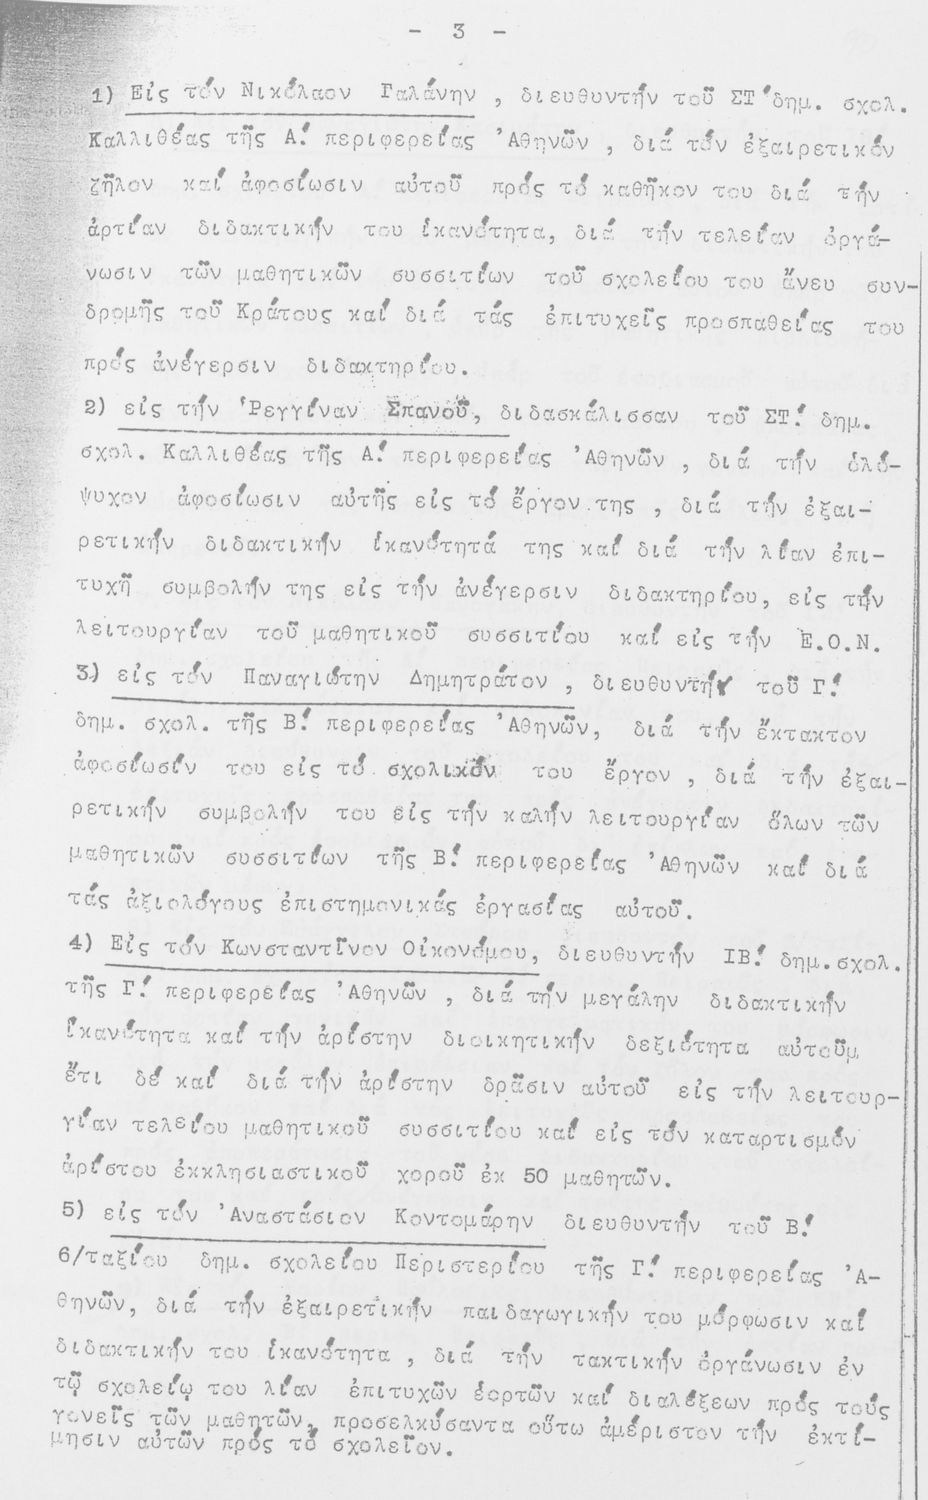 - 3 -
1) Εἰς τόν Νικόλαον Γαλάνην , διευθυντήν τοῦ ΣΤ΄δημ. σχολ.
Καλλιθέας τῆς Α΄ περιφερείας Ἀθηνῶν , διά τόν ἐξαιρετικόν
ζῆλον καί ἀφοσίωσιν αὐτοῦ πρός τό καθῆκον του διά τήν
ἀρτίαν διδακτικήν του ἱκανότητα, διά τήν τελείαν ὀργά-
νωσιν τῶν μαθητικῶν συσσιτίων τοῦ σχολείου του ἄνευ συν-
δρομῆς τοῦ Κράτους καί διά τάς ἐπιτυχεῖς προσπαθείας του
πρός ἀνέγερσιν διδακτηρίου.
2) εἰς τήν Ῥεγγίναν Σπανοῦ, διδασκάλισσαν τοῦ ΣΤ΄ δημ.
σχολ. Καλλιθέας τῆς Α΄ περιφερείας Ἀθηνῶν , διά τήν ὁλό-
ψυχον ἀφοσίωσιν αὐτῆς εἰς τό ἔργον της , διά τήν ἐξαι-
ρετικήν διδακτικήν ἱκανότητά της καί διά τήν λίαν ἐπι-
τυχῆ συμβολήν της εἰς τήν ἀνέγερσιν διδακτηρίου, εἰς τήν
λειτουργίαν τοῦ μαθητικοῦ συσσιτίου καί εἰς τήν Ε.Ο.Ν.
3) εἰς τόν Παναγιώτην Δημητράτον , διευθυντήν τοῦ Γ΄
δημ. σχολ. τῆς Β΄ περιφερείας Ἀθηνῶν, διά τήν ἔκτακτον
ἀφοσίωσίν του εἰς τό σχολικόν του ἔργον , διά τήν ἐξαι-
ρετικήν συμβολήν του εἰς τήν καλήν λειτουργίαν ὅλων τῶν
μαθητικῶν συσσιτίων τῆς Β΄ περιφερείας Ἀθηνῶν καί διά
τάς ἀξιολόγους ἐπιστημονικάς ἐργασίας αὐτοῦ.
4) Εἰς τόν Κωνσταντῖνον Οἰκονόμου, διευθυντήν ΙΒ΄ δημ.σχολ.
τῆς Γ΄ περιφερείας Ἀθηνῶν , διά τήν μεγάλην διδακτικήν
ἱκανότητα καί τήν ἀρίστην διοικητικήν δεξιότητα αὐτοῦμ
ἔτι δέ καί διά τήν ἀρίστην δρᾶσιν αὐτοῦ εἰς τήν λειτουρ-
γίαν τελείου μαθητικοῦ συσσιτίου καί εἰς τόν καταρτισμόν
ἀρίστου ἐκκλησιαστικοῦ χοροῦ ἐκ 50 μαθητῶν.
5) εἰς τόν Ἀναστάσιον Κοντομάρην διευθυντήν τοῦ Β΄
6/ταξίου δημ. σχολείου Περιστερίου τῆς Γ΄ περιφερείας Ἀ-
θηνῶν, διά τήν ἐξαιρετικήν παιδαγωγικήν του μόρφωσιν καί
διδακτικήν του ἱκανότητα , διά τήν τακτικήν ὀργάνωσιν ἐν
τῷ σχολείῳ του λίαν ἐπιτυχῶν ἑορτῶν καί διαλέξεων πρός τούς
γονεῖς τῶν μαθητῶν, προσελκύσαντα οὕτω ἀμέριστον τήν ἐκτί-
μησιν αὐτῶν πρός τό σχολεῖον.